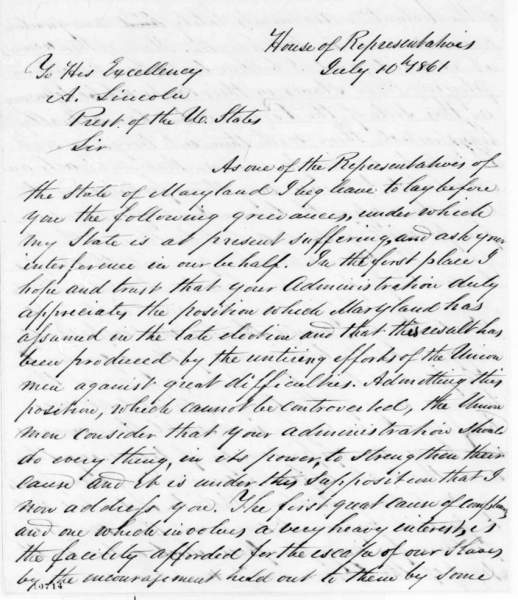 House of Representatives
July 10th 1861
To His Excellency
A. Lincoln
Prest. of the U. States
Sir
As one of the Representatives of
the State of Maryland I beg leave to lay before
you the following grievances, under which
my State is at present suffering, and ask your
interference in our behalf. In the first place I
hope and trust that your Administration duly
appreciates the position which Maryland has
assumed in the late election and that this result has
been produced by the untiring efforts of the Union
men against great difficulties. Admitting this
position, which cannot be controverted, the Union
men consider that your administration should
do everything, in its power, to strengthen their
cause and it is under this supposition that I
now address you. The first great cause of complaint
and one which involves a very heavy interest, is
the facility afforded for the escape of our Slaves
by the encouragement held out to them by some